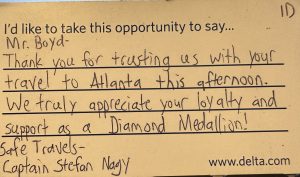 1D
I'd like to take this opportunity to say...
Mr. Boyd-
Thank you for trusting us with your
travel to Atlanta this afternoon.
We truly appreciate your loyalty and
support as a Diamond Medallion!
Safe Travels-
Captain Stefan Nagy
www.delta.com